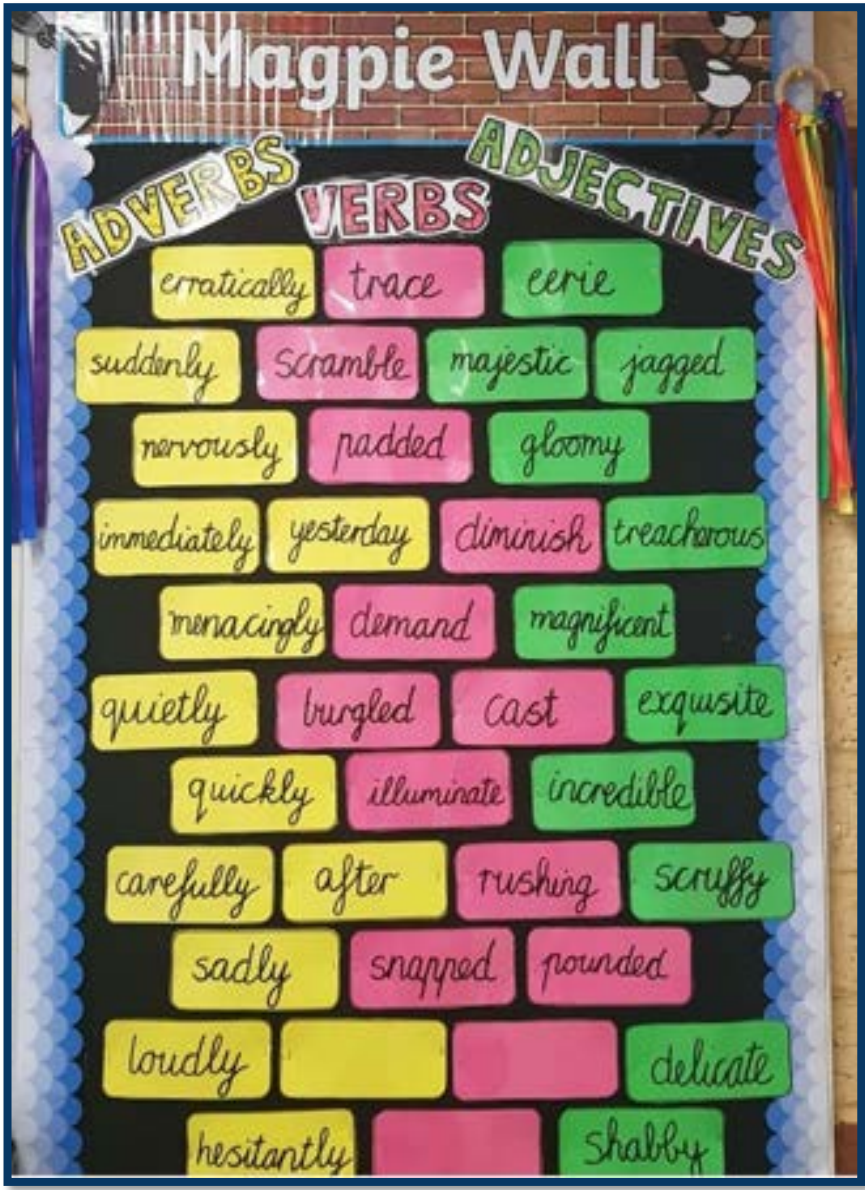 Magpie Wall
ADVERBS VERBS ADJECTIVES
erratically trace eerie
suddenly scramble majestic jagged
nervously padded gloomy
immediately yesterday diminish treacherous
menacingly demand magnificent
quietly burgled cast exquisite
quickly illuminate incredible
carefully after rushing scruffy
sadly snapped pounded
loudly delicate
hesitantly shabby